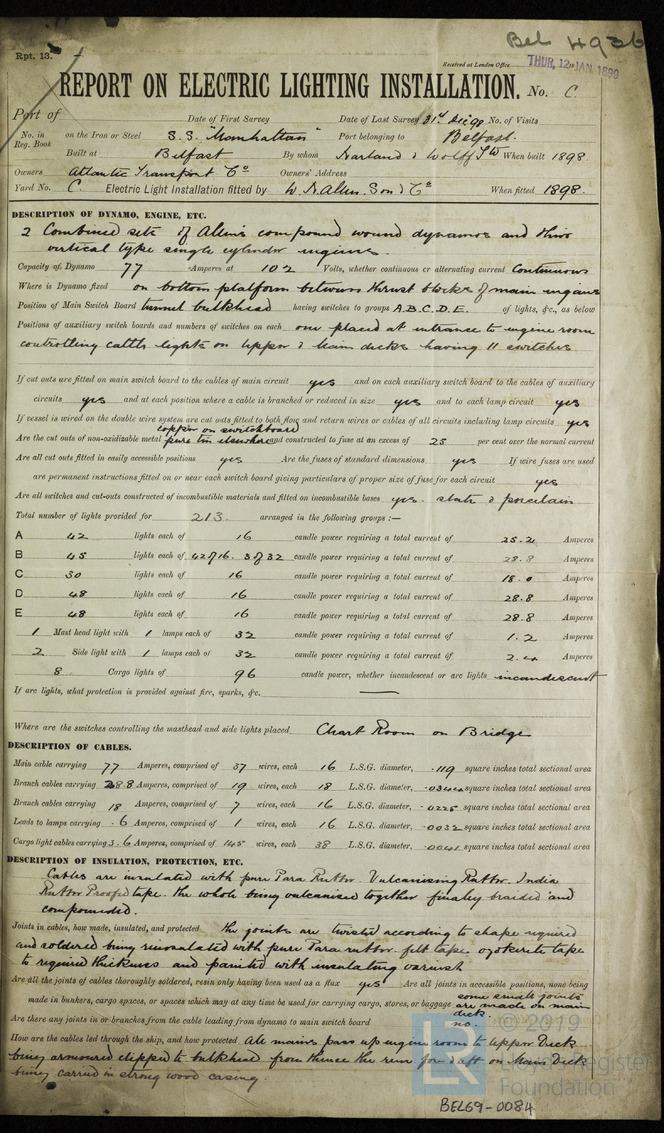 Bel 4936
Rpt. 13.
Received at London Office THUR, 12 JAN 1899
REPORT ON ELECTRIC LIGHTING INSTALLATION. No. C.
Port of Date of First Survey Date of Last Survey 31st Dec 98 No. of Visits
No. in Reg. Book on the Iron or Steel S.S. "Manhattan" Port belonging to Belfast.
Built at Belfast By whom Harland & Wolff Ltd When built 1898.
Owners Atlantic Transport Co Owners' Address
Yard No. C. Electric Light Installation fitted by W. H. Allen. Son & Co When fitted 1898.
DESCRIPTION OF DYNAMO, ENGINE, ETC.
2 Combined sets of Allen's compound wound dynamos and their
vertical type single cylinder engines.
Capacity of Dynamo 77 Amperes at 102 Volts, whether continuous or alternating current Continuous
Where is Dynamo fixed on bottom platform between thrust blocks of main engines
Position of Main Switch Board tunnel bulkhead having switches to groups A.B.C.D.E. of lights, &c., as below
Positions of auxiliary switch boards and numbers of switches on each one placed at entrance to engine room
controlling cattle lights on upper & main decks having 11 switches
If cut outs are fitted on main switch board to the cables of main circuit yes and on each auxiliary switch board to the cables of auxiliary
circuits yes and at each position where a cable is branched or reduced in size yes and to each lamp circuit yes
If vessel is wired on the double wire system are cut outs fitted to both flow and return wires or cables of all circuits including lamp circuits yes
copper on switchboard
Are the cut outs of non-oxidizable metal pure tin elsewhere and constructed to fuse at an excess of 25 per cent over the normal current
Are all cut outs fitted in easily accessible positions yes Are the fuses of standard dimensions yes If wire fuses are used
are permanent instructions fitted on or near each switch board giving particulars of proper size of fuse for each circuit yes
Are all switches and cut-outs constructed of incombustible materials and fitted on incombustible bases yes. slate & porcelain
Total number of lights provided for 213. arranged in the following groups :—
A 42 lights each of 16 candle power requiring a total current of 25.2 Amperes
B 45 lights each of 42 of 16. 3 of 32 candle power requiring a total current of 28.8 Amperes
C 30 lights each of 16 candle power requiring a total current of 18.0 Amperes
D 48 lights each of 16 candle power requiring a total current of 28.8 Amperes
E 48 lights each of 16 candle power requiring a total current of 28.8 Amperes
1 Mast head light with 1 lamps each of 32 candle power requiring a total current of 1.2 Amperes
2 Side light with 1 lamps each of 32 candle power requiring a total current of 2.4 Amperes
8 Cargo lights of 96 candle power, whether incandescent or arc lights incandescent
If arc lights, what protection is provided against fire, sparks, &c. —
Where are the switches controlling the masthead and side lights placed Chart Room on Bridge
DESCRIPTION OF CABLES.
Main cable carrying 77 Amperes, comprised of 37 wires, each 16 L.S.G. diameter, .119 square inches total sectional area
Branch cables carrying 28.8 Amperes, comprised of 19 wires, each 18 L.S.G. diameter, .0344 square inches total sectional area
Branch cables carrying 18 Amperes, comprised of 7 wires, each 16 L.S.G. diameter, .0225 square inches total sectional area
Leads to lamps carrying .6 Amperes, comprised of 1 wires, each 16 L.S.G. diameter, .0032 square inches total sectional area
Cargo light cables carrying 3.6 Amperes, comprised of 145 wires, each 38 L.S.G. diameter, .0041 square inches total sectional area
DESCRIPTION OF INSULATION, PROTECTION, ETC.
Cables are insulated with pure Para Rubber. Vulcanising Rubber. India
Rubber Proofed tape. the whole being vulcanised together finaley braided and
compounded.
Joints in cables, how made, insulated, and protected the joints are twisted according to shape required
and soldered being reinsulated with pure Para rubber. felt tape. ozokerite tape
to required thickness and painted with insulating varnish
Are all the joints of cables thoroughly soldered, resin only having been used as a flux yes Are all joints in accessible positions, none being
made in bunkers, cargo spaces, or spaces which may at any time be used for carrying cargo, stores, or baggage some small joints are made on main deck.
Are there any joints in or branches from the cable leading from dynamo to main switch board no.
How are the cables led through the ship, and how protected All mains pass up engine room to upper Deck
being armoured clipped to bulkhead from thence they run for & aft on Main Deck
being carried in strong wood casing.
© 2019
Lloyd's Register
Foundation
BEL69-0084